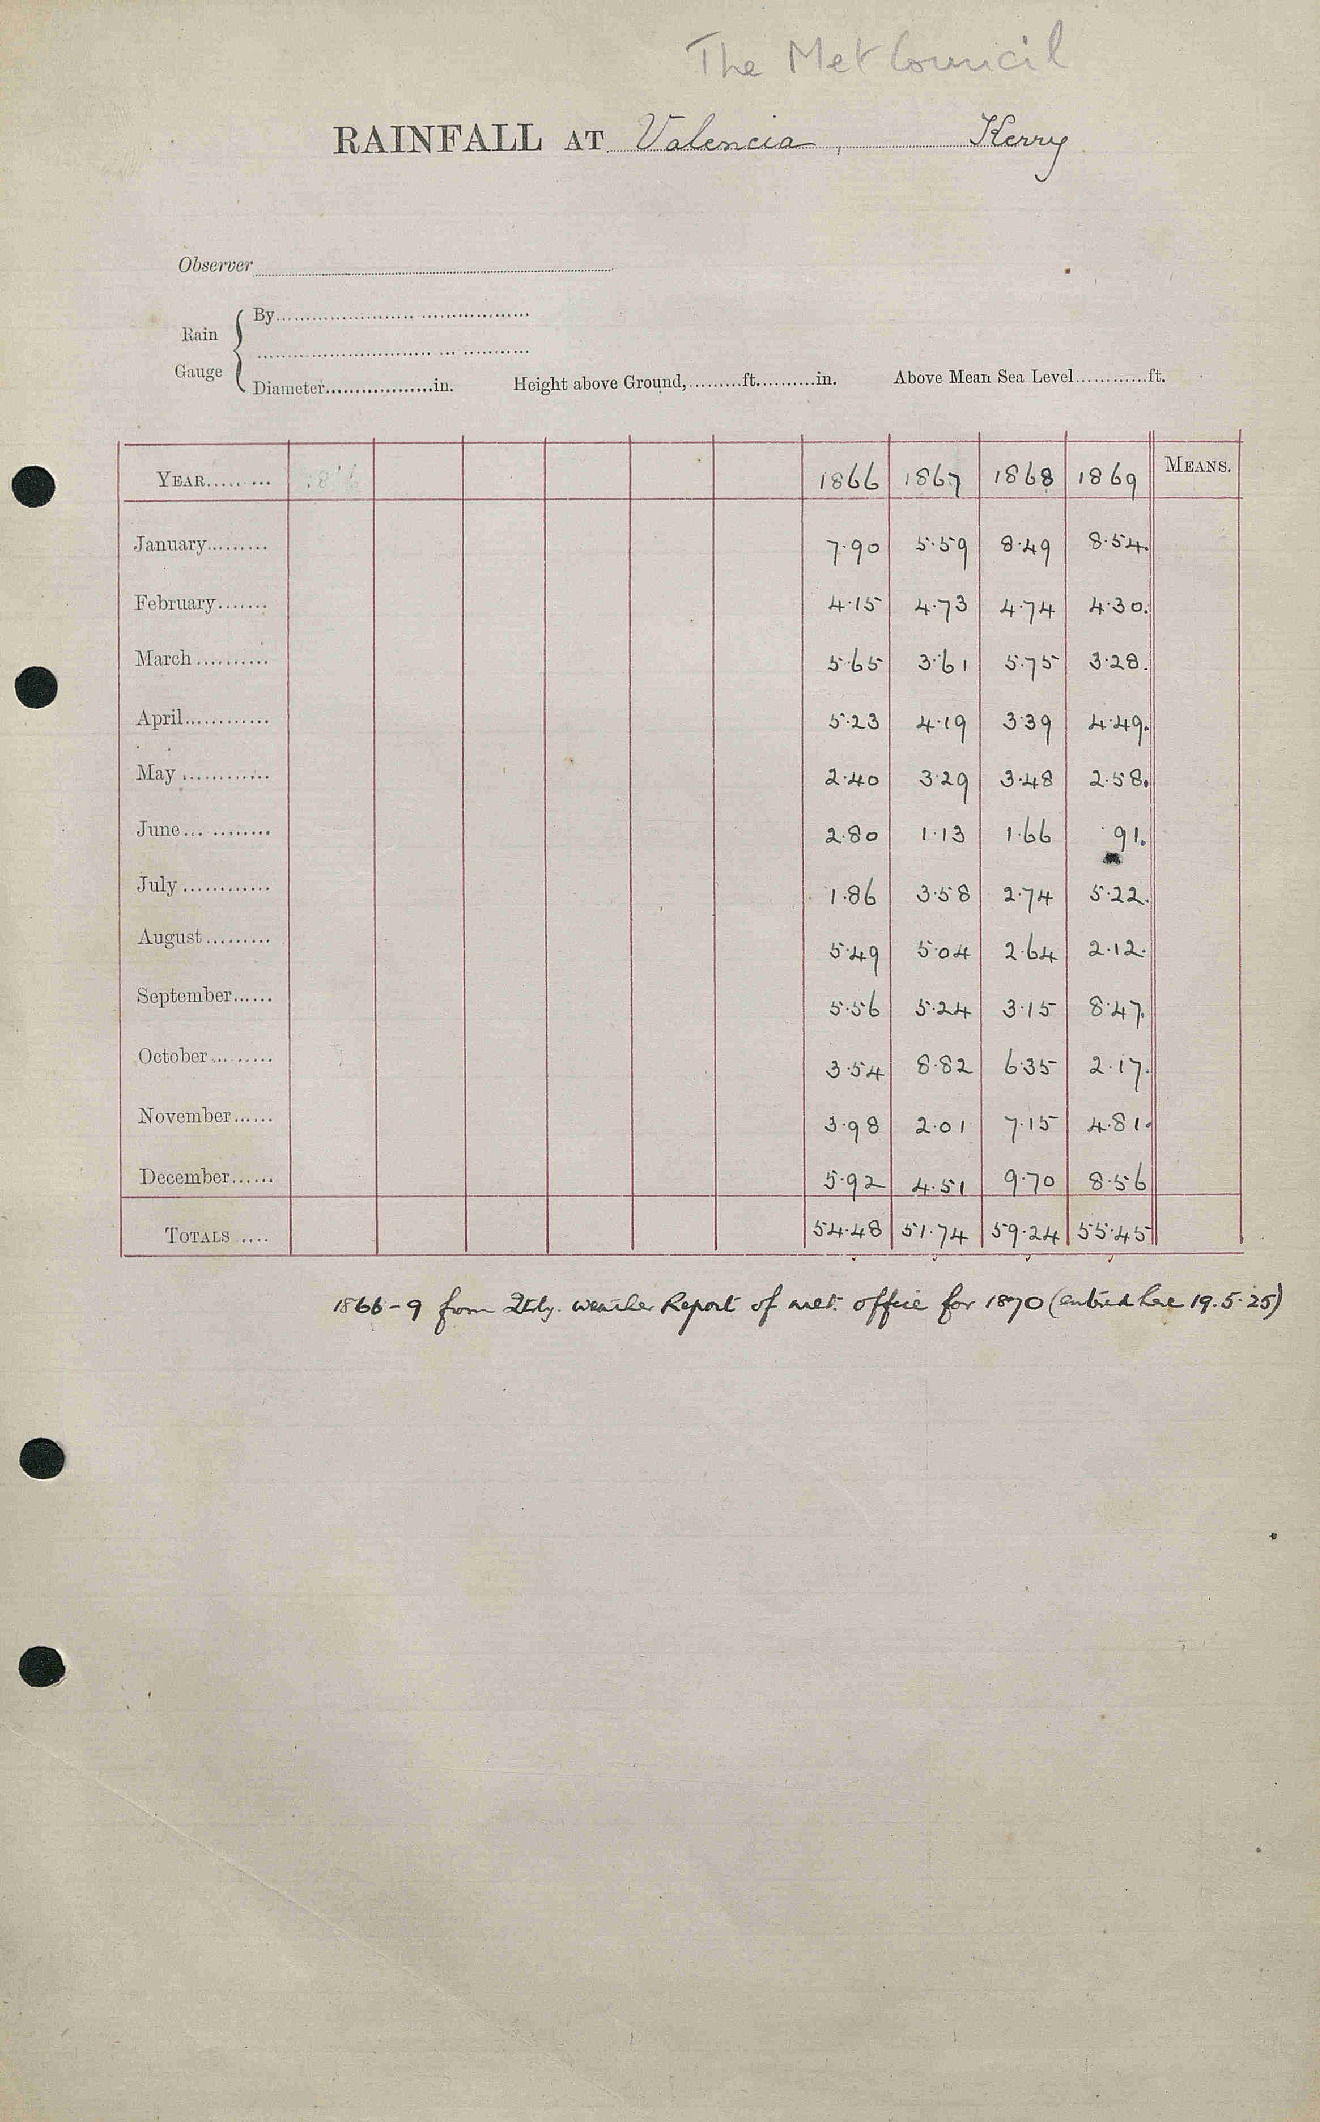 The Met Council
RAINFALL AT Valencia, Kerry
Observer
Rain Gauge { By
Diameter in. Height above Ground, ft. in. Above Mean Sea Level ft.
YEAR 1866 1867 1868 1869 MEANS.
January 7.90 5.59 8.49 8.54.
February 4.15 4.73 4.74 4.30.
March 5.65 3.61 5.75 3.28.
April 5.23 4.19 3.39 4.49.
May 2.40 3.29 3.48 2.58.
June 2.80 1.13 1.66 .91.
July 1.86 3.58 2.74 5.22.
August 5.49 5.04 2.64 2.12.
September 5.56 5.24 3.15 8.47.
October 3.54 8.82 6.35 2.17.
November 3.98 2.01 7.15 4.81.
December 5.92 4.51 9.70 8.56
TOTALS 54.48 51.74 59.24 55.45
1866-9 from Qtrly. weather Report of met. office for 1870 (entered here 19.5.25)